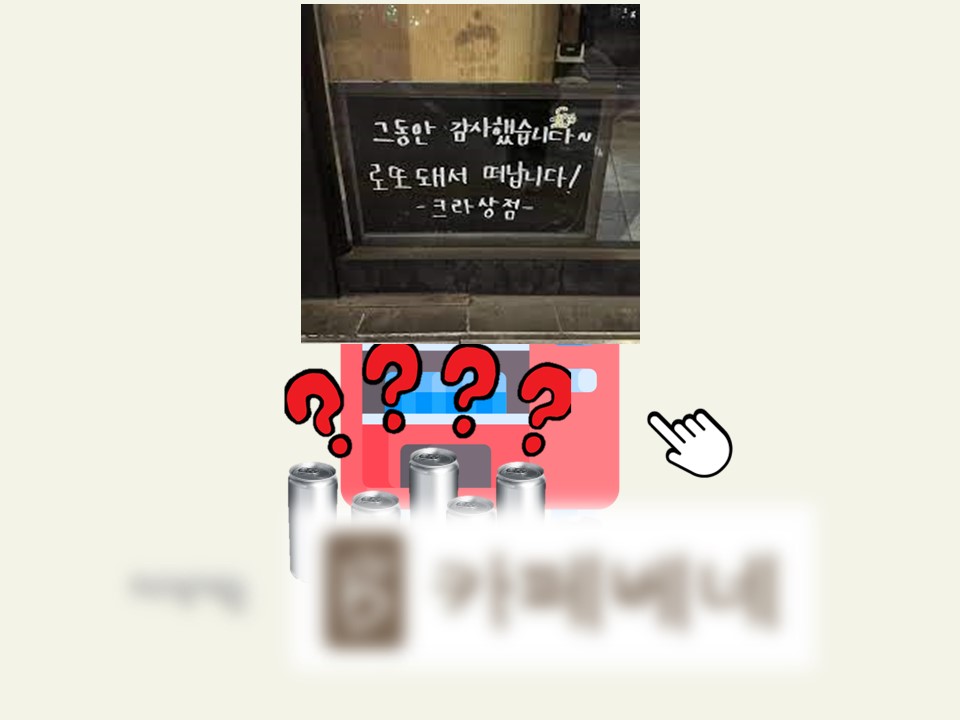 그동안 감사했습니다~
로또 돼서 떠납니다!
-크라상점-
카페베네